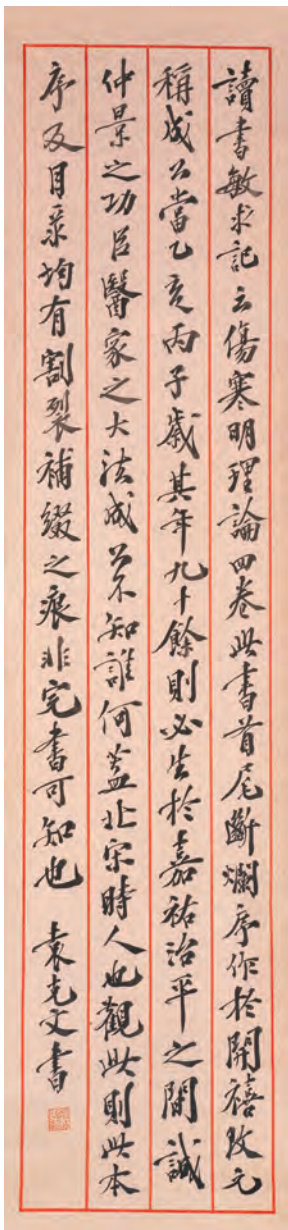 讀書敏求記云傷寒明理論四卷此書首尾斷爛序作於開禧改元
稱成公當乙亥丙子歲其年九十餘則必生於嘉祐治平之間誠
仲景之功臣醫家之大法成公不知誰何蓋北宋時人也觀此則此本
序及目录均有割裂補綴之痕非完書可知也 袁克文書